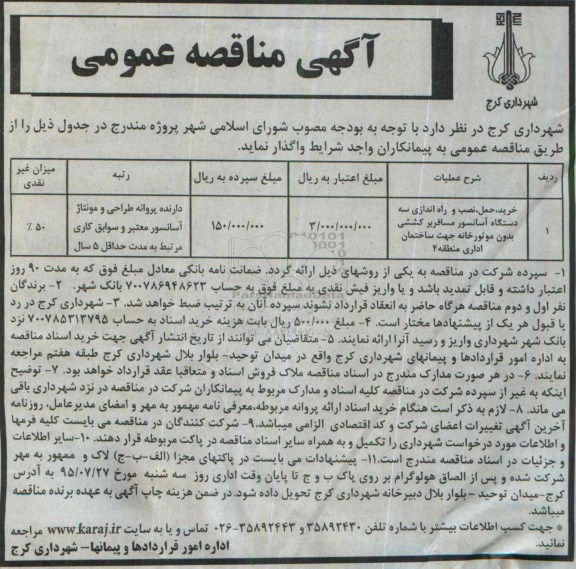 آگهی مناقصه عمومی
شهرداری کرج
شهرداری کرج در نظر دارد با توجه به بودجه مصوب شورای اسلامی شهر پروژه مندرج در جدول ذیل را از
طریق مناقصه عمومی به پیمانکاران واجد شرایط واگذار نماید.
ردیف	شرح عملیات	مبلغ اعتبار به ریال	مبلغ سپرده به ریال	رتبه	میزان غیر نقدی
۱	خرید،حمل،نصب و راه اندازی سه دستگاه آسانسور مسافربر کششی بدون موتورخانه جهت ساختمان اداری منطقه۴	۳/۰۰۰/۰۰۰/۰۰۰	۱۵۰/۰۰۰/۰۰۰	دارنده پروانه طراحی و مونتاژ آسانسور معتبر و سوابق کاری مرتبط به مدت حداقل ۵ سال	۵۰ ٪
۱- سپرده شرکت در مناقصه به یکی از روشهای ذیل ارائه گردد. ضمانت نامه بانکی معادل مبلغ فوق که به مدت ۹۰ روز
اعتبار داشته و قابل تمدید باشد و یا واریز فیش نقدی به مبلغ فوق به حساب ۷۰۰۷۸۶۹۴۸۶۲۳ بانک شهر. ۲- برندگان
نفر اول و دوم مناقصه هرگاه حاضر به انعقاد قرارداد نشوند سپرده آنان به ترتیب ضبط خواهد شد. ۳- شهرداری کرج در رد
یا قبول هر یک از پیشنهادها مختار است. ۴- مبلغ ۵۰۰/۰۰۰ ریال بابت هزینه خرید اسناد به حساب ۷۰۰۷۸۵۳۱۳۷۹۵ نزد
بانک شهر شهرداری واریز و رسید آنرا ارائه نمایند. ۵- متقاضیان می توانند از تاریخ انتشار آگهی جهت خرید اسناد مناقصه
به اداره امور قراردادها و پیمانهای شهرداری کرج واقع در میدان توحید- بلوار بلال شهرداری کرج طبقه هفتم مراجعه
نمایند. ۶- در هر صورت مدارک مندرج در اسناد مناقصه ملاک فروش اسناد و متعاقبا عقد قرارداد خواهد بود. ۷- توضیح
اینکه به غیر از سپرده شرکت در مناقصه کلیه اسناد و مدارک مربوط به پیمانکاران شرکت در مناقصه در نزد شهرداری باقی
می ماند. ۸- لازم به ذکر است هنگام خرید اسناد ارائه پروانه مربوطه،معرفی نامه ممهور به مهر و امضای مدیرعامل، روزنامه
آخرین آگهی تغییرات اعضای شرکت و کد اقتصادی الزامی میباشد.۹- شرکت کنندگان در مناقصه می بایست کلیه فرمها
و اطلاعات مورد درخواست شهرداری را تکمیل و به همراه سایر اسناد مناقصه در پاکت مربوطه قرار دهند. ۱۰-سایر اطلاعات
و جزئیات در اسناد مناقصه مندرج است.۱۱- پیشنهادات می بایست در پاکتهای مجزا (الف-ب-ج) لاک و ممهور به مهر
شرکت شده و پس از الصاق هولوگرام بر روی پاک ب و ج تا پایان وقت اداری روز سه شنبه مورخ ۹۵/۰۷/۲۷ به آدرس
کرج-میدان توحید - بلوار بلال دبیرخانه شهرداری کرج تحویل داده شود. در ضمن هزینه چاپ آگهی به عهده برنده مناقصه
میباشد.
* جهت کسب اطلاعات بیشتر با شماره تلفن ۳۵۸۹۲۴۳۰ و ۳۵۸۹۲۴۴۳-۰۲۶ تماس و یا به سایت www.karaj.ir مراجعه
نمائید.
اداره امور قراردادها و پیمانها- شهرداری کرج